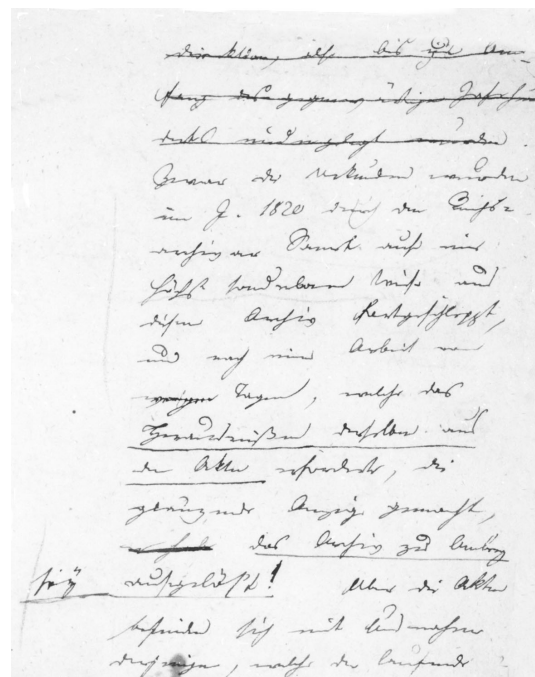 die Akten, als bis zu An-
fang des gegenwärtigen Jahrhun
derts niedergelegt wurden.
Zwar die Urkunden wurden
im J. 1820 durch den Reichs-
archivar Samet auf eine
höchst sonderbare Weise aus
diesem Archiv fortgeschleppt,
und nach einer Arbeit von
wenigen Tagen, welche das
Herausreißen derselben aus
den Akten erforderte, die
glänzende Anzeige gemacht,
das Archiv zu Amberg
sey aufgelöst! Aber die Akten
befinden sich mit Ausnahme
derjenigen, welche der laufende